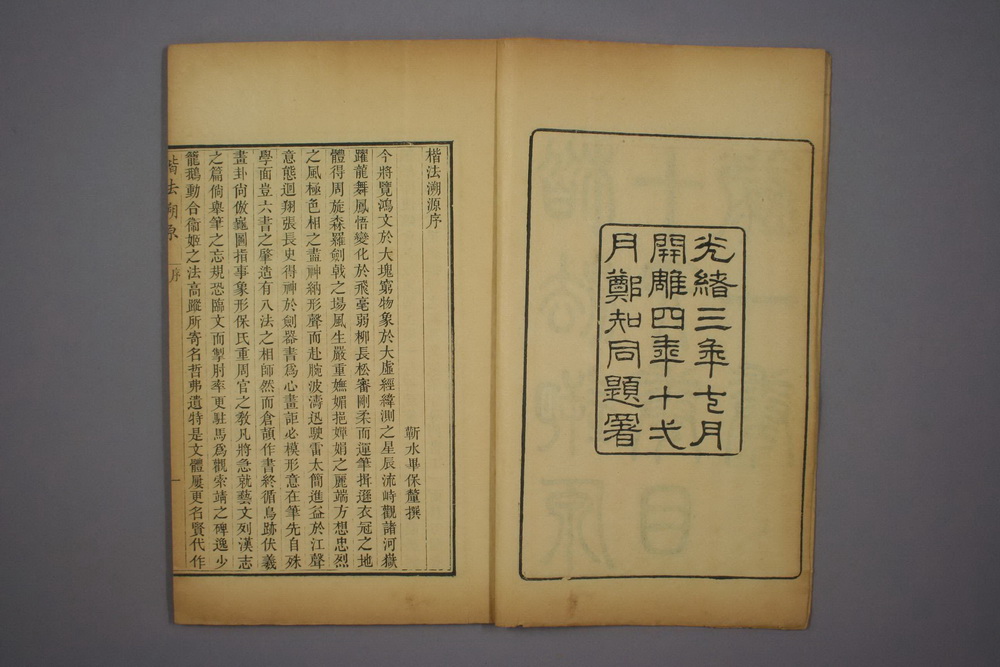 光緒三年七月
開雕四年十弍
月鄭知同題署
楷法溯源序
蘄水畢保釐撰
今將覽鴻文於大塊窮物象於大虛經緯測之星辰流峙觀諸河嶽
躍龍舞鳳悟變化於飛毫弱柳長松審剛柔而運筆揖遜衣冠之地
體得周旋森羅劍戟之場風生嚴重嫵媚挹嬋娟之麗端方想忠烈
之風極色相之盡神納形聲而赴腕波濤迅駛雷太簡進益於江聲
意態迴翔張長史得神於劍器書為心畫詎必模形意在筆先自殊
學面豈六書之肇造有八法之相師然而倉頡作書終循鳥跡伏羲
畫卦尙倣龜圖指事象形保氏重周官之敎凡將急就藝文列漢志
之篇倘舉筆之忘規恐臨文而掣肘率更駐馬為觀索靖之碑逸少
籠鵝動合衞姬之法高蹤所寄名哲弗遺特是文體屢更名賢代作
楷法溯原
序
一